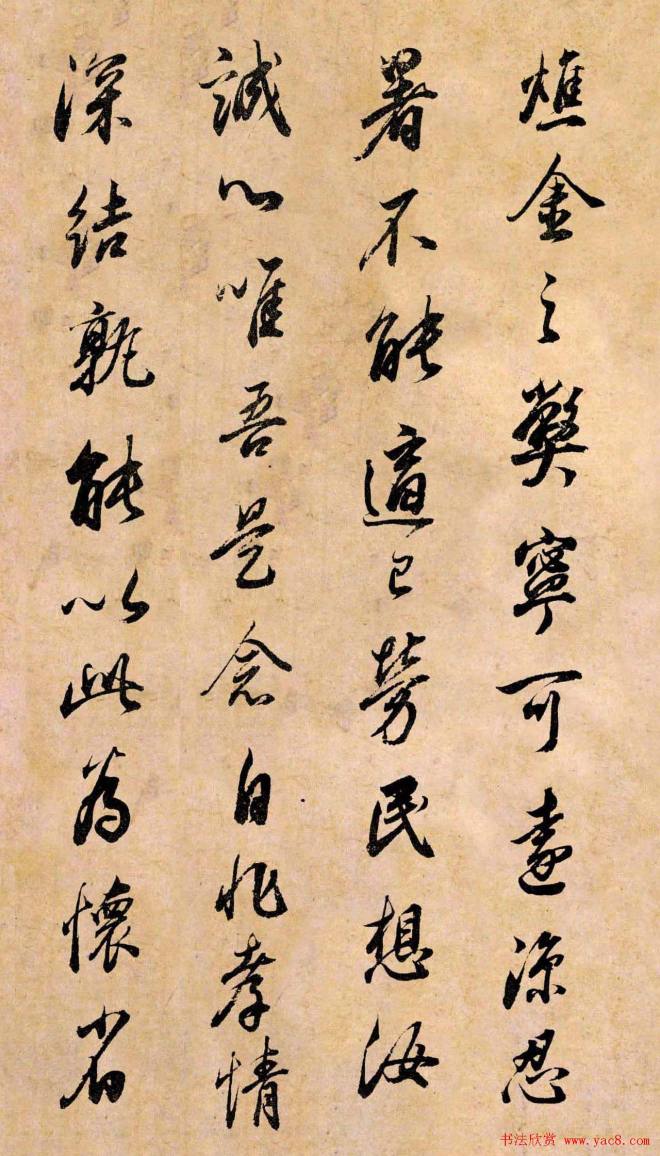 燋金之弊寧可違涼忍
暑不能適己勞民想汝
誠心唯吾是念自非孝情
深結孰能以此為懷省
书法欣赏 www.yac8.com